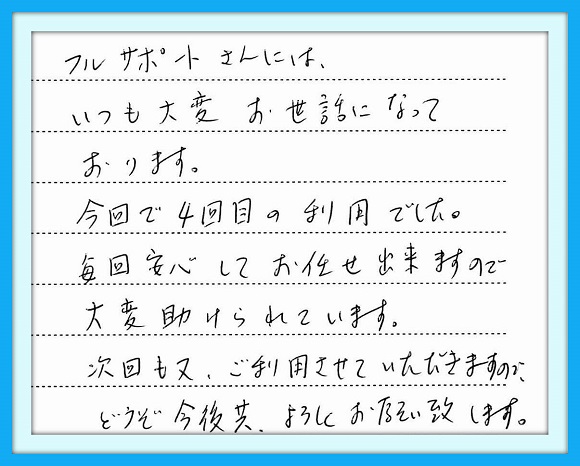 フルサポートさんには、
いつも大変お世話になって
おります。
今回で4回目の利用でした。
毎回安心してお任せ出来ますので
大変助けられています。
次回も又、ご利用させていただきますので、
どうぞ今後共、よろしくお願い致します。